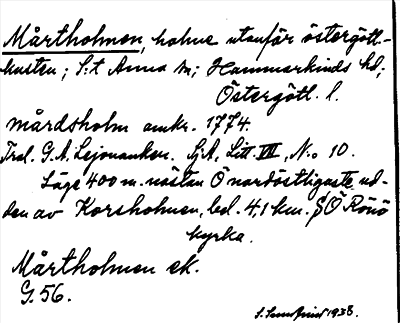 Mårtholmen, holme utanför östergöt-
kusten; S:t Anna sn; Hammarkinds hd;
Östergötl. l.
Mårdsholm omkr. 1774.
Trol. G. A. Lejonancker. SjA, Litt VII, No 10.
Läge 400 m. nästan Ö nordöstligaste ud-
den av Korsholmen, bel. 4,1 km. SÖ Rönö
kyrka.
Mårtholmen ek.
G. 56.
1938.